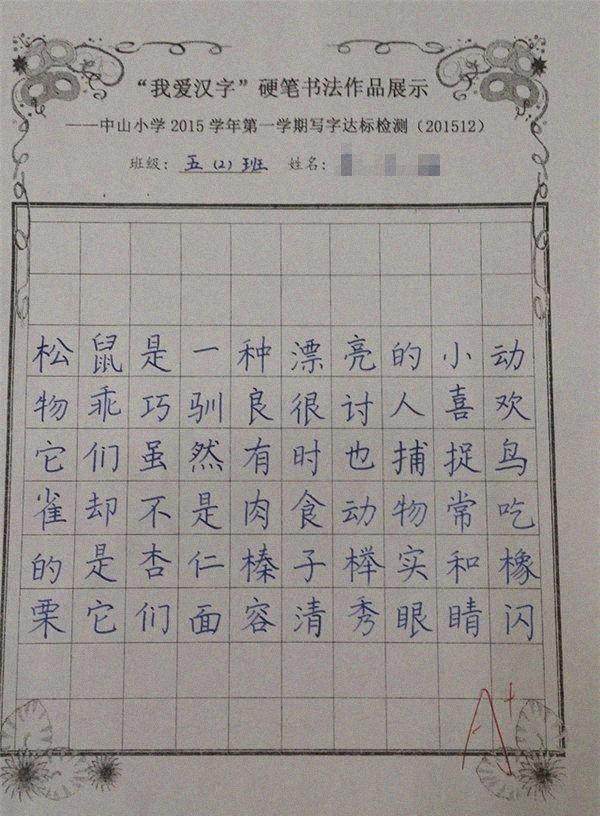 “我爱汉字”硬笔书法作品展示
——中山小学2015学年第一学期写字达标检测（201512）
班级：五(2)班 姓名：
松鼠是一种漂亮的小动
物乖巧驯良很讨人喜欢
它们虽然有时也捕捉鸟
雀却不是肉食动物常吃
的是杏仁榛子榉实和橡
栗它们面容清秀眼睛闪
A+